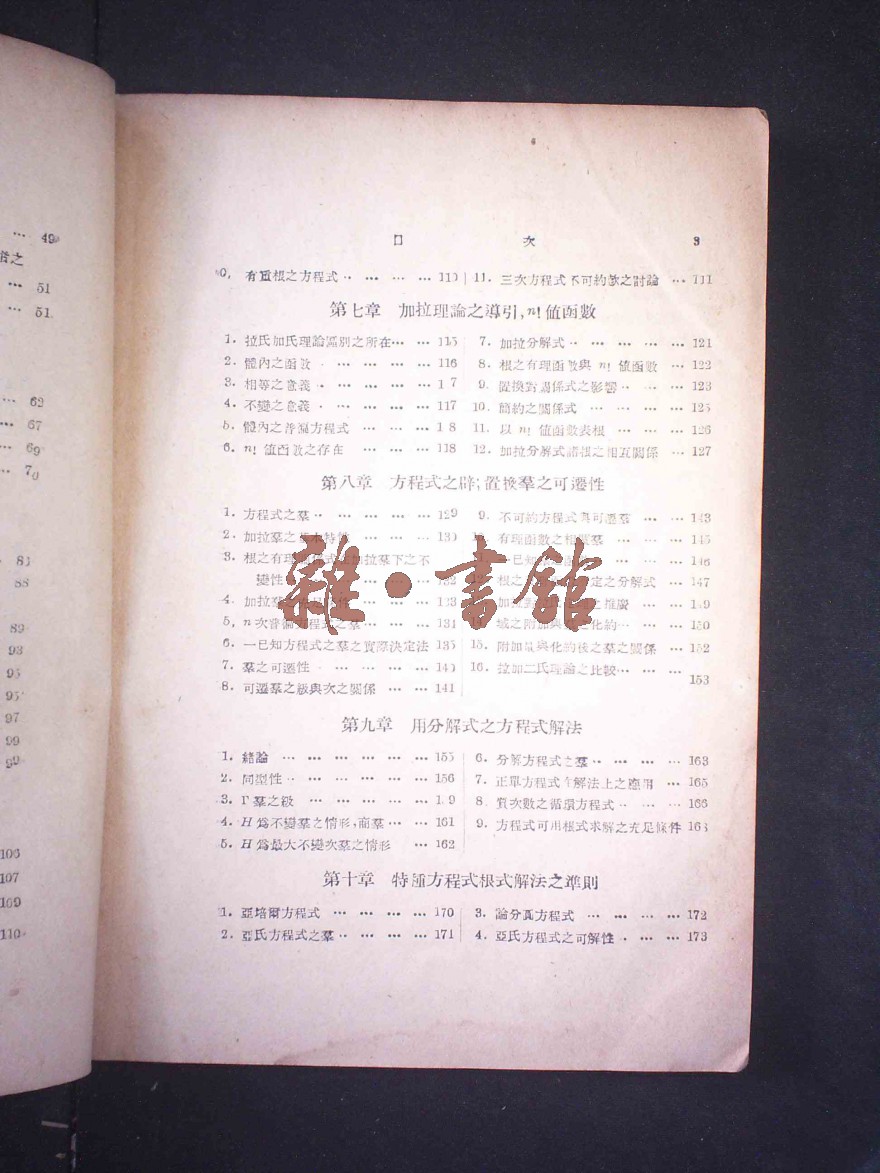 49
者之
... 51
... 51
... 62
... 67
... 69
... 70
81
88
89
93
95
95
97
99
99
106
107
109
110
目 次 3
0. 有重根之方程式 ... ... ... ... 110
11. 三次方程式不可約款之討論 ... 111
第七章 加拉理論之導引,n! 値函數
1. 拉氏加氏理論區別之所在 ... ... 115
2. 體內之函數 ... ... ... ... 116
3. 相等之意義 ... ... ... ... 1 7
4. 不變之意義 ... ... ... ... 117
5. 體內之普遍方程式 ... ... ... 1 8
6. n! 值函數之存在 ... ... ... 118
7. 加拉分解式 ... ... ... ... ... 121
8. 根之有理函數與 n! 值函數 ... 122
9. 置換對關係式之影響 ... ... ... 123
10. 簡約之關係式 ... ... ... ... 125
11. 以 n! 值函數表根 ... ... ... 126
12. 加拉分解式諸根之相互關係 ... 127
第八章 方程式之群;置換羣之可遷性
1. 方程式之羣 ... ... ... ... ... 129
2. 加拉羣之基本特性 ... ... ... 130
3. 根之有理 加拉羣下之不
變性 ... ... 132
4. 加拉羣 性 ... ... 133
5. n 次普遍方程式之羣 ... ... ... 134
6. 一已知方程式之羣之實際決定法 135
7. 羣之可遷性 ... ... ... ... 140
8. 可遷羣之級與次之關係 ... ... 141
9. 不可約方程式與可遷羣 ... ... 143
有理函數之相 羣 ... ... 145
一已知 ... 146
根之 定之分解式 ... 147
加拉 之推廣 ... 149
域之附加與 之化約 ... ... 150
15. 附加量與化約後之羣之關係 ... 152
16. 拉加二氏理論之比較 ... ... ...
153
第九章 用分解式之方程式解法
1. 緒論 ... ... ... ... ... ... 155
2. 同型性 ... ... ... ... ... ... 156
3. Γ 羣之級 ... ... ... ... ... 1 9
4. H 爲不變羣之情形,商羣 ... ... 161
5. H 爲最大不變次羣之情形 ... 162
6. 分解方程式之羣 ... ... ... ... 163
7. 正單方程式在解法上之應用 ... 165
8. 質次數之循環方程式 ... ... ... 166
9. 方程式可用根式求解之充足條件 168
第十章 特種方程式根式解法之準則
1. 亞培爾方程式 ... ... ... ... 170
2. 亞氏方程式之羣 ... ... ... ... 171
3. 論分圓方程式 ... ... ... ... 172
4. 亞氏方程式之可解性 ... ... ... 173
雜·書館